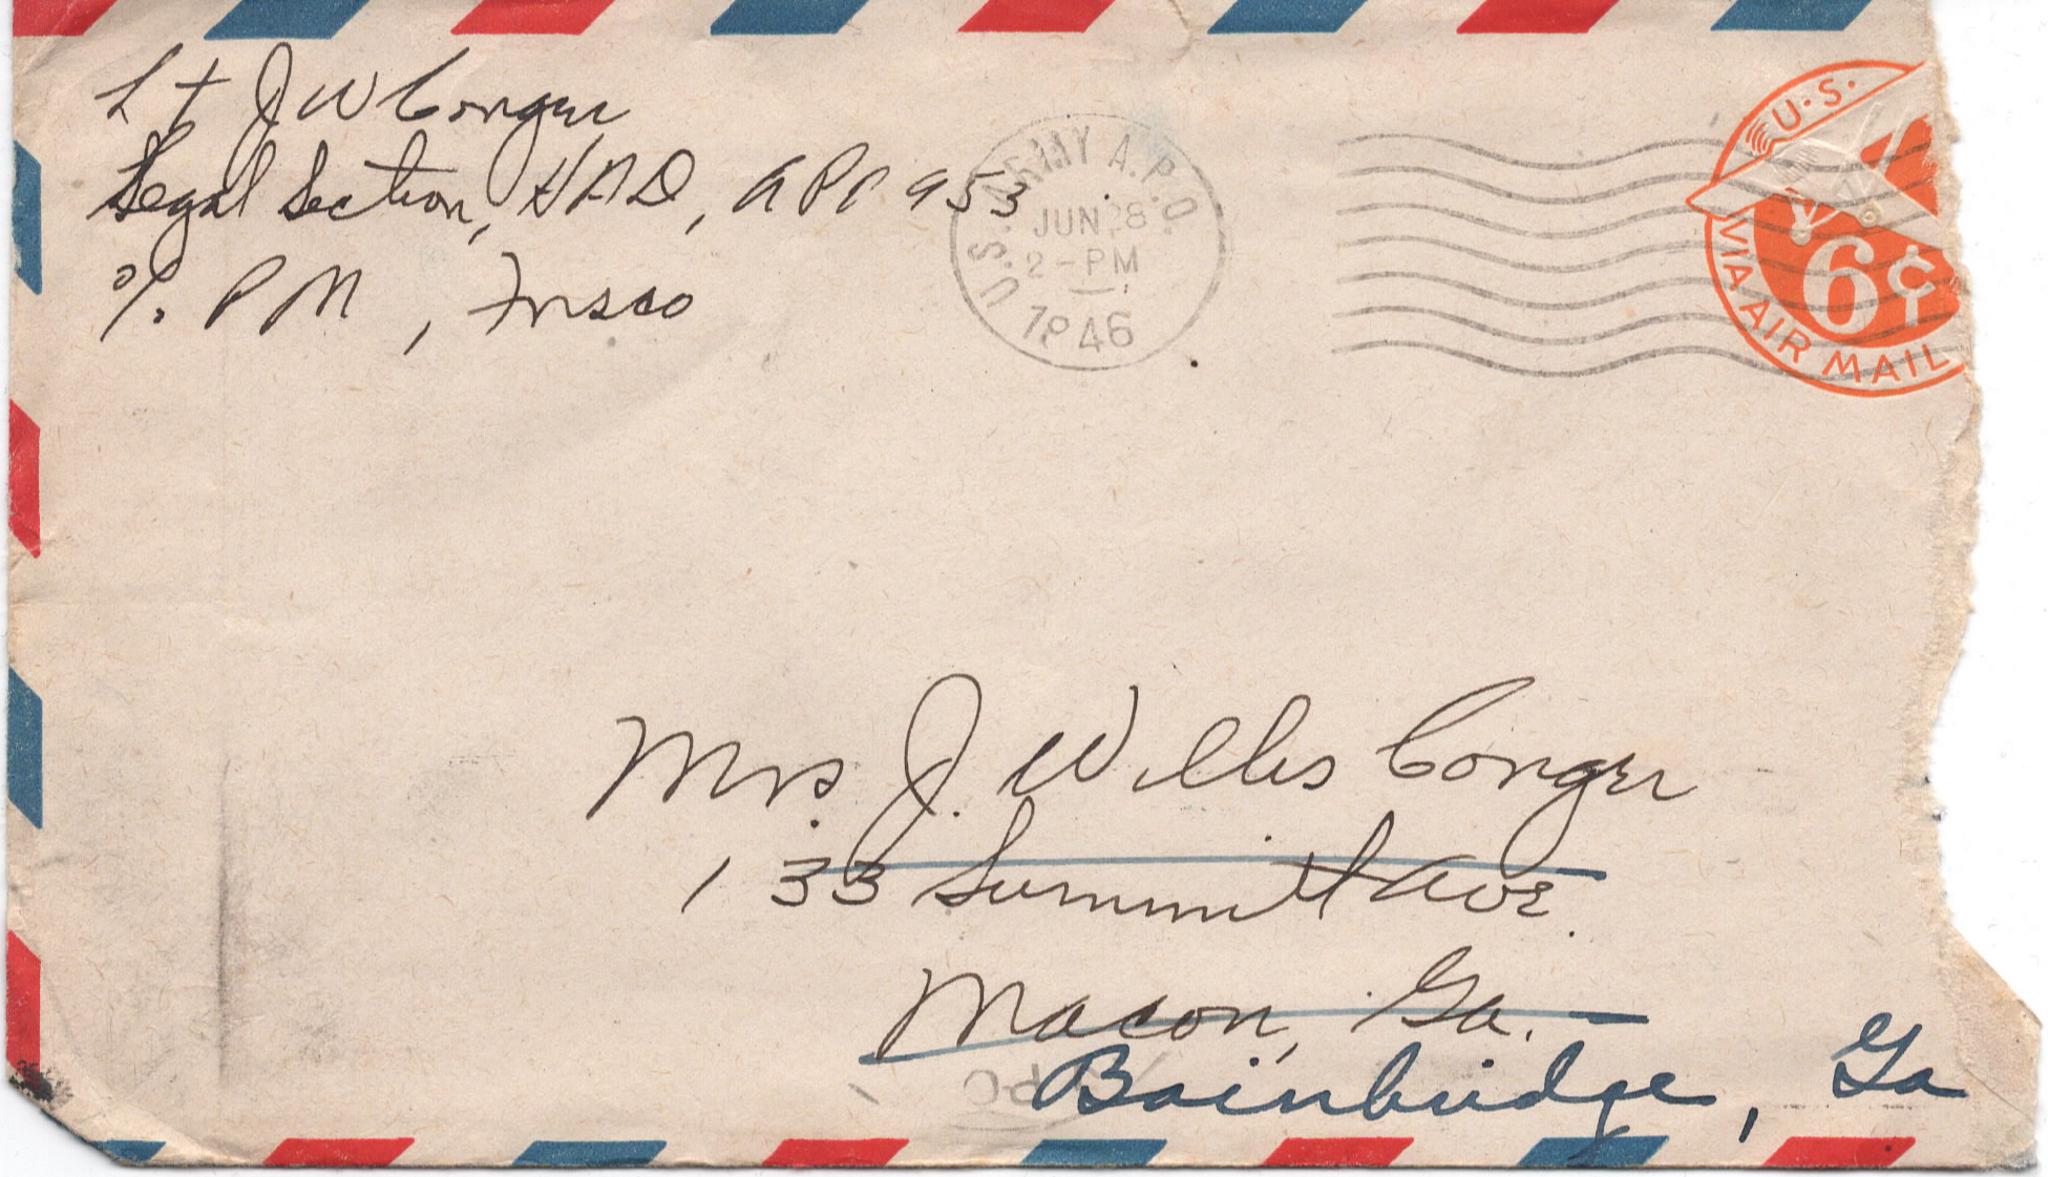 Lt J W Conger
Legal Section, HAD, APO 953
% PM, Frisco
U.S. ARMY A.P.O.
JUN 28
2-PM
1946
U.S.
6¢
VIA AIR MAIL
Mrs. J. Willis Conger
133 Summit Ave.
Macon, Ga.
Bainbridge, Ga